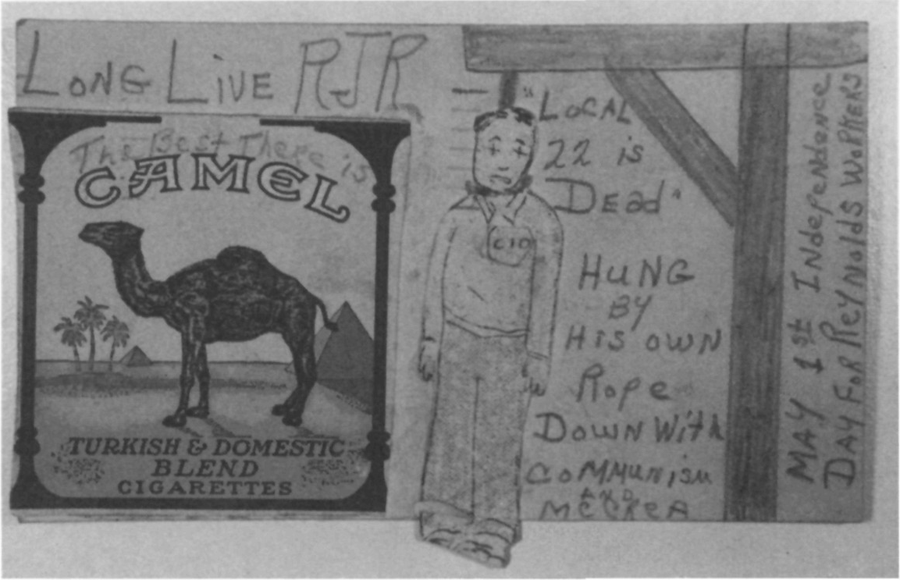 LONG LIVE RJR
The Best There is
CAMEL
TURKISH & DOMESTIC
BLEND
CIGARETTES
"LOCAL
22 is
DEad"
CIO
HUNG
BY
His OWN
Rope
DOWN With
COMMUNISM
AND
MCCREA
MAY 1st INdependence
DAY FOR REYNOLdS WORKERS